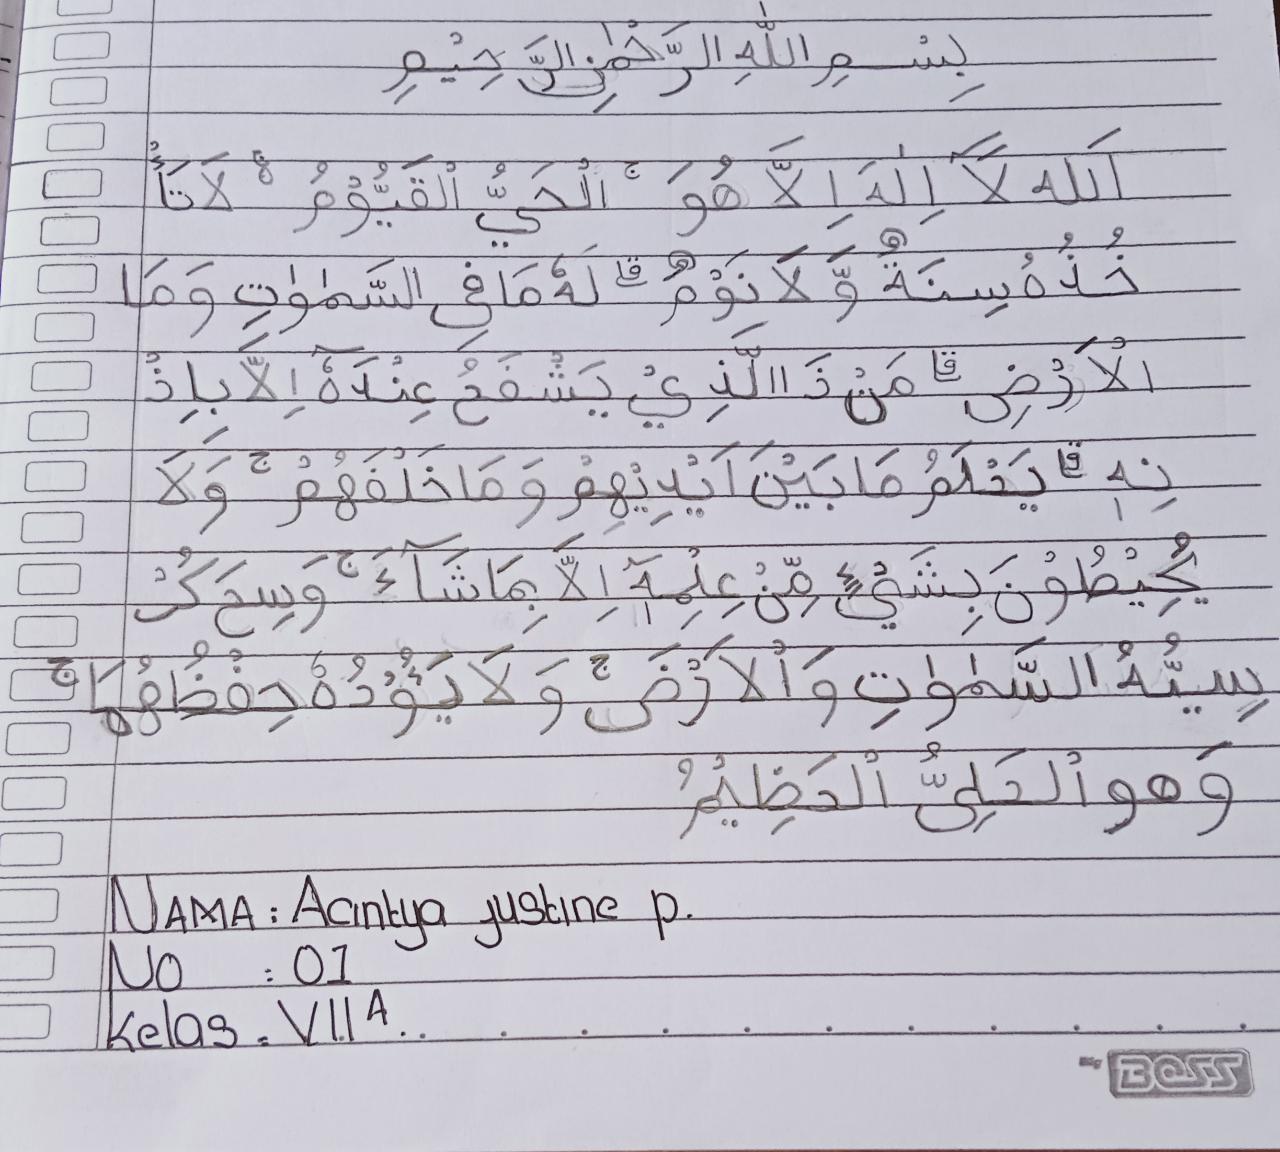 بِسْمِ اللّٰهِ الرَّحْمٰنِ الرَّحِيْمِ
اَللهُ لَآ اِلٰهَ اِلَّا هُوَ ۚ اَلْحَيُّ الْقَيُّوْمُ ەۚ لَا تَأْ
خُذُهُ سِنَةٌ وَّلَا نَوْمٌ ۗ لَهُ مَا فِى السَّمٰوٰتِ وَمَا
الْاَرْضِ ۗ مَنْ ذَا الَّذِيْ يَشْفَعُ عِنْدَهٗٓ اِلَّا بِاِذْ
نِهٖ ۗ يَعْلَمُ مَا بَيْنَ اَيْدِيْهِمْ وَمَا خَلْفَهُمْ ۚ وَلَا
يُحِيْطُوْنَ بِشَيْءٍ مِّنْ عِلْمِهٖٓ اِلَّا بِمَا شَآءَ ۚ وَسِعَ كُرْ
سِيُّهُ السَّمٰوٰتِ وَالْاَرْضَ ۚ وَلَا يَـُٔوْدُهٗ حِفْظُهُمَا ۚ
وَهُوَ الْعَلِيُّ الْعَظِيْمُ
NAMA : Acintya justine p.
NO : 01
Kelas : VII A
BOSS